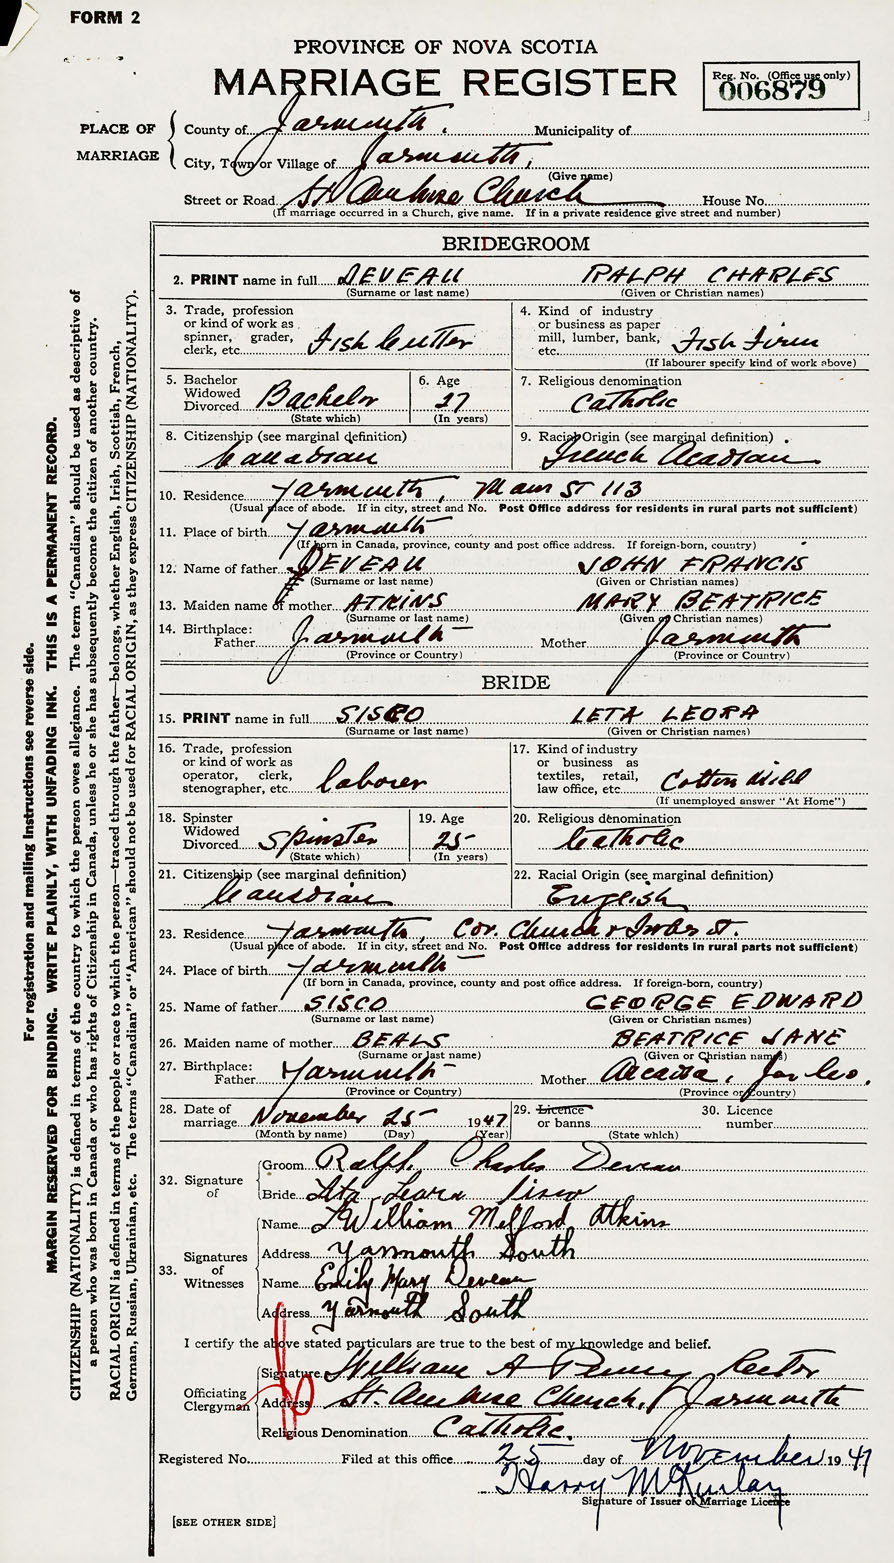 FORM 2
PROVINCE OF NOVA SCOTIA
MARRIAGE REGISTER
Reg. No. (Office use only)
006879
PLACE OF MARRIAGE
County of Yarmouth. Municipality of
City, Town or Village of Yarmouth,
(Give name)
Street or Road St Ambrose Church House No.
(If marriage occurred in a Church, give name. If in a private residence give street and number)
BRIDEGROOM
2. PRINT name in full DEVEAU RALPH CHARLES
(Surname or last name) (Given or Christian names)
3. Trade, profession or kind of work as spinner, grader, clerk, etc. Fish Cutter
4. Kind of industry or business as paper mill, lumber, bank, etc. Fish Firm
(If labourer specify kind of work above)
5. Bachelor Widowed Divorced Bachelor
(State which)
6. Age 27
(In years)
7. Religious denomination Catholic
8. Citizenship (see marginal definition) Canadian
9. Racial Origin (see marginal definition) French Acadian
10. Residence Yarmouth, Main St 113
(Usual place of abode. If in city, street and No. Post Office address for residents in rural parts not sufficient)
11. Place of birth Yarmouth
(If born in Canada, province, county and post office address. If foreign-born, country)
12. Name of father DEVEAU JOHN FRANCIS
(Surname or last name) (Given or Christian names)
13. Maiden name of mother ATKINS MARY BEATRICE
(Surname or last name) (Given or Christian names)
14. Birthplace: Father Yarmouth Mother Yarmouth
(Province or Country) (Province or Country)
BRIDE
15. PRINT name in full SISCO LETA LEORA
(Surname or last name) (Given or Christian names)
16. Trade, profession or kind of work as operator, clerk, stenographer, etc. laborer
17. Kind of industry or business as textiles, retail, law office, etc. Cotton Mill
(If unemployed answer "At Home")
18. Spinster Widowed Divorced Spinster
(State which)
19. Age 25
(In years)
20. Religious denomination Catholic
21. Citizenship (see marginal definition) Canadian
22. Racial Origin (see marginal definition) English
23. Residence Yarmouth, Cor. Church & St.
(Usual place of abode. If in city, street and No. Post Office address for residents in rural parts not sufficient)
24. Place of birth Yarmouth
(If born in Canada, province, county and post office address. If foreign-born, country)
25. Name of father SISCO GEORGE EDWARD
(Surname or last name) (Given or Christian names)
26. Maiden name of mother BEALS BEATRICE JANE
(Surname or last name) (Given or Christian names)
27. Birthplace: Father Yarmouth Mother Arcadia, Yar Co.
(Province or Country) (Province or Country)
28. Date of marriage November 25 1947
(Month by name) (Day) (Year)
29. Licence or banns
(State which)
30. Licence number
32. Signature of
Groom Ralph Charles Deveau
Bride Leta Leora Sisco
33. Signatures of Witnesses
Name William Melford Atkins
Address Yarmouth South
Name Emily Mary Deveau
Address Yarmouth South
I certify the above stated particulars are true to the best of my knowledge and belief.
Officiating Clergyman
Signature William A Penny Rector
Address St. Ambrose Church, Yarmouth
Religious Denomination Catholic.
Registered No. Filed at this office 25 day of November 1947
Harry McKinlay
Signature of Issuer of Marriage Licence
[SEE OTHER SIDE]
For registration and mailing instructions see reverse side.
MARGIN RESERVED FOR BINDING. WRITE PLAINLY, WITH UNFADING INK. THIS IS A PERMANENT RECORD.
CITIZENSHIP (NATIONALITY) is defined in terms of the country to which the person owes allegiance. The term "Canadian" should be used as descriptive of
a person who was born in Canada or who has rights of Citizenship in Canada, unless he or she has subsequently become the citizen of another country.
RACIAL ORIGIN is defined in terms of the people or race to which the person—traced through the father—belongs, whether English, Irish, Scottish, French,
German, Russian, Ukrainian, etc. The terms "Canadian" or "American" should not be used for RACIAL ORIGIN, as they express CITIZENSHIP (NATIONALITY).